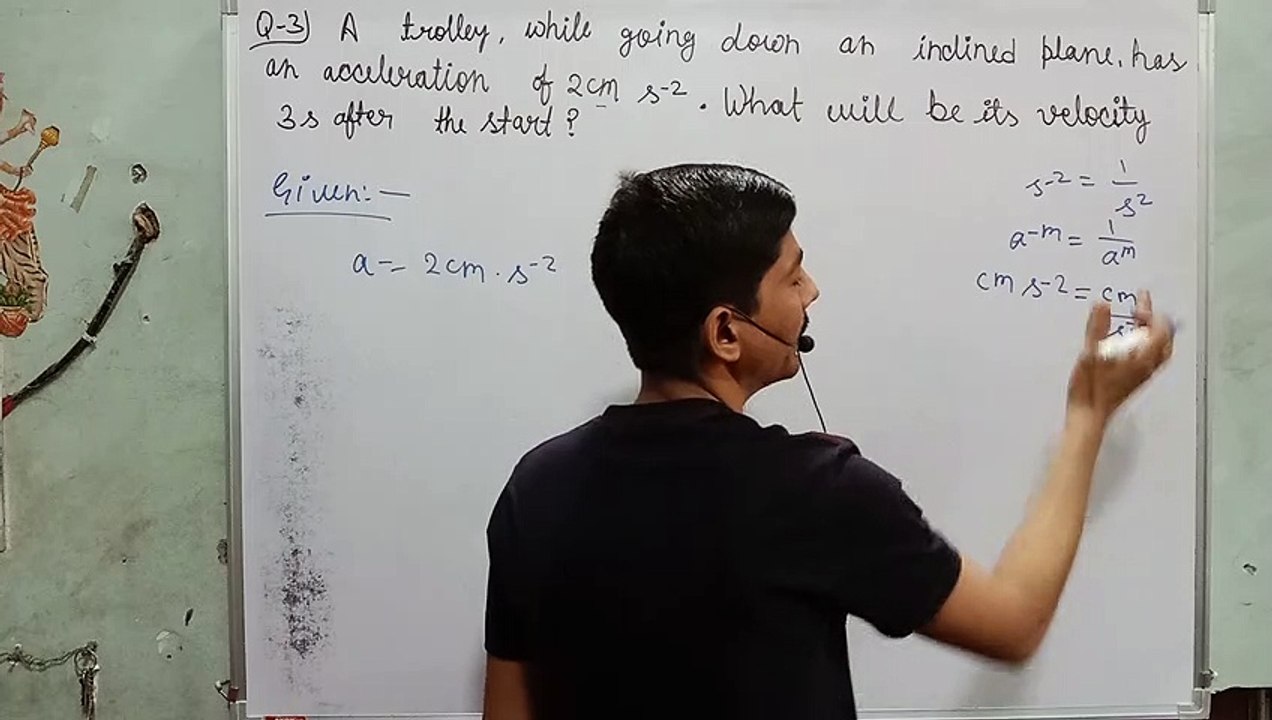 Q-3) A trolley, while going down an inclined plane, has
an acceleration of 2cm s⁻². What will be its velocity
3s after the start?
Given:—
a = 2cm. s⁻²
s⁻² = 1/s²
a⁻ᵐ = 1/aᵐ
cm s⁻² = cm/s